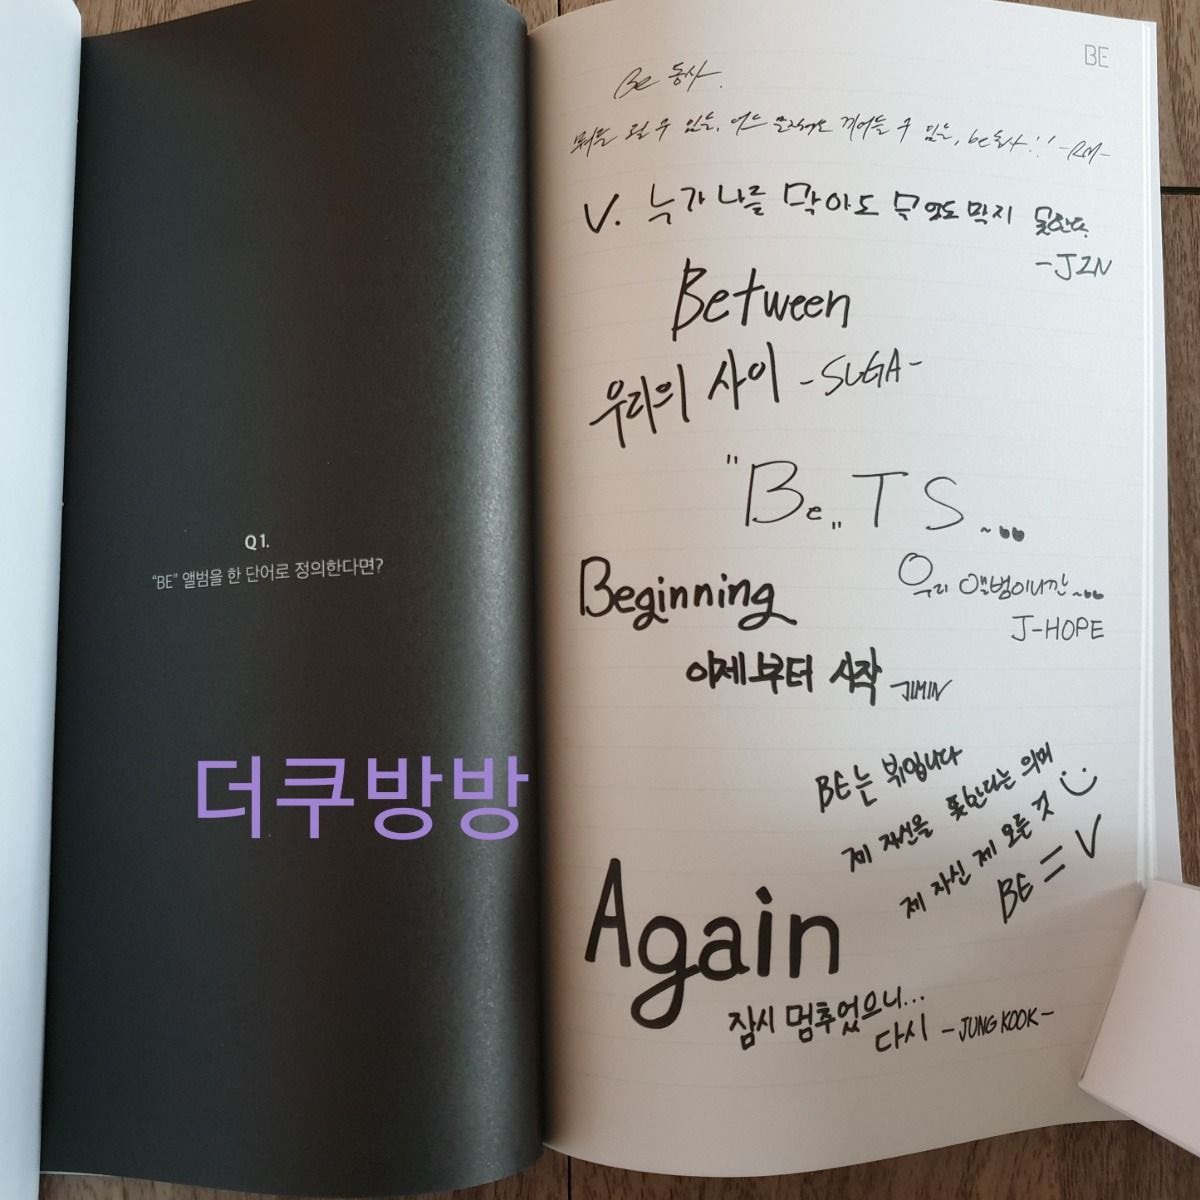 Q1.
"BE" 앨범을 한 단어로 정의한다면?
더쿠방방
BE
Be 동사.
뭐든 될 수 있는, 어느 문장에도 끼어들 수 있는, be동사!! -RM-
V. 누가 나를 막아도 무엇도 막지 못한다.
-JIN
Between
우리의 사이 -SUGA-
"Be" TS ~
우리 앨범이니깐 ~
J-HOPE
Beginning
이제부터 시작 -JIMIN
BE는 뷔입니다
제 자신을 뜻한다는 의미
제 자신 제 모든 것
BE = V
Again
잠시 멈추었으니...
다시 -JUNG KOOK-